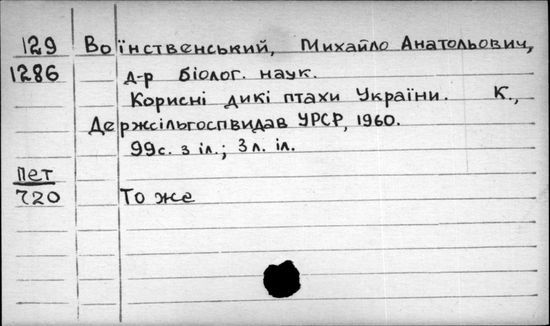 129 Воїнственський, Михайло Анатольович,
1286 д-р біолог. наук.
Корисні дикі птахи України. К.,
Держсільгоспвидав УРСР, 1960.
99с. з іл.; 3л. іл.
Пет
720 То же